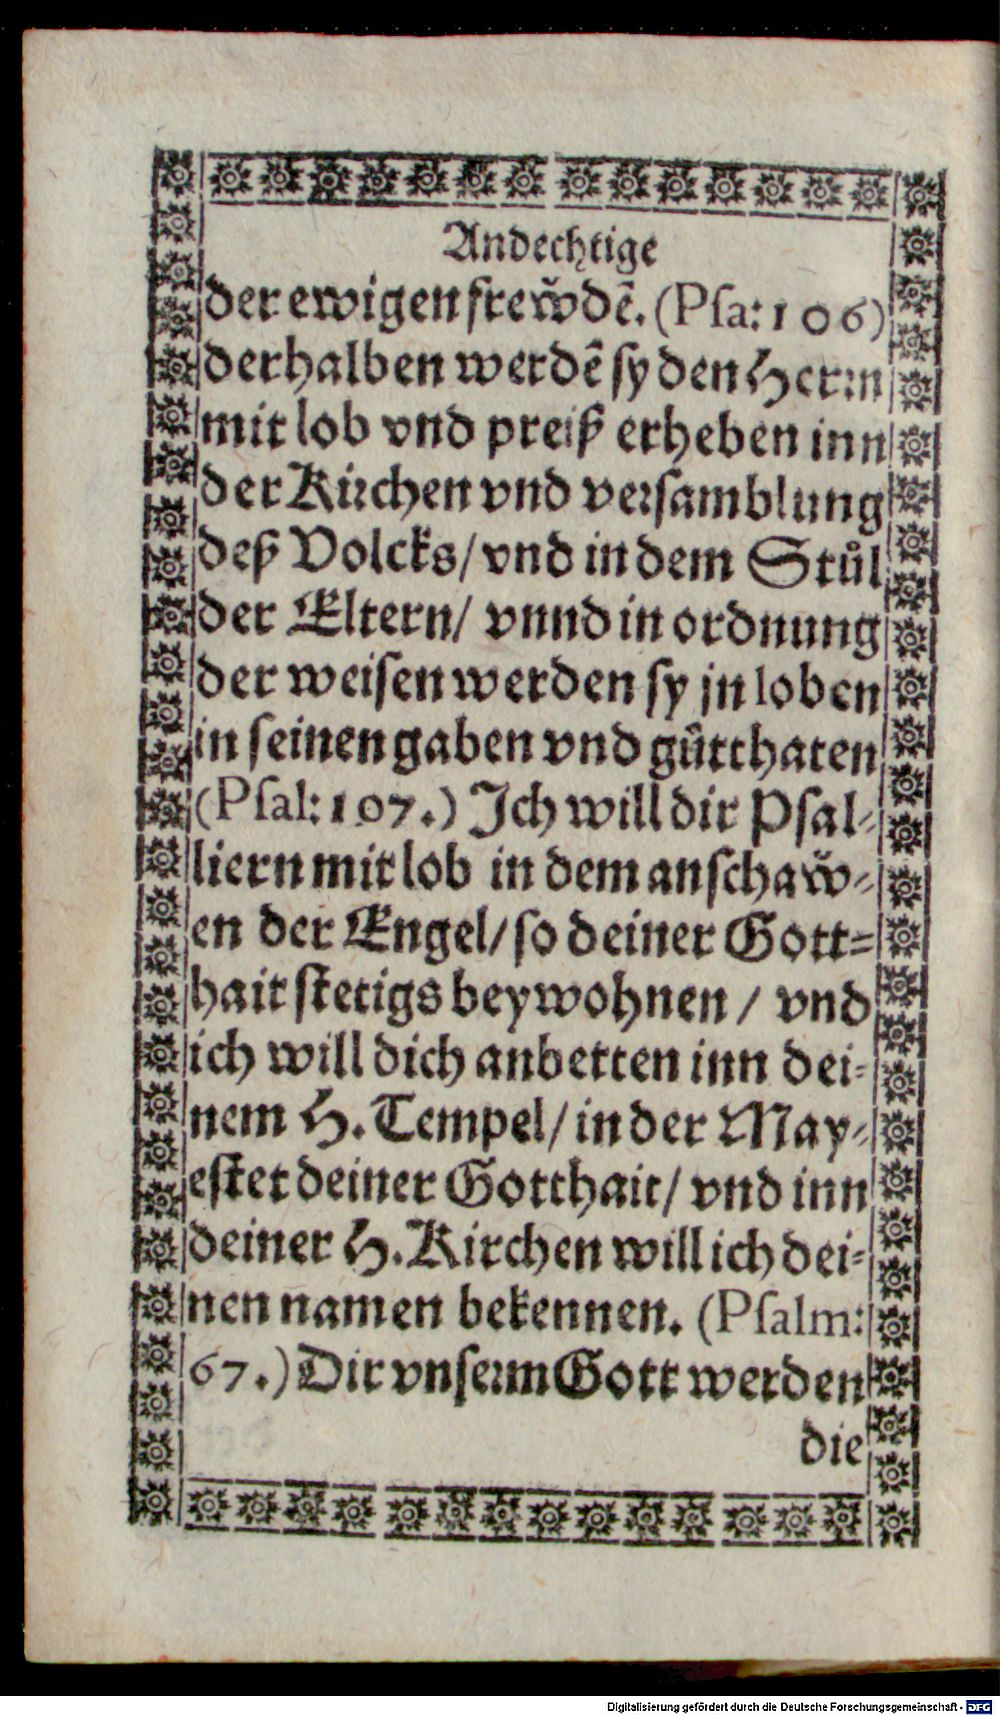 Andechtige
der ewigen frew̆dẽ. (Psa: 106)
derhalben werdẽ sy den Herrn
mit lob vnd preiß erheben inn
der Kirchen vnd versamblung
deß Volcks/ vnd in dem Stůl
der Eltern/ vnnd in ordnung
der weisen werden sy jn loben
in seinen gaben vnd gůtthaten
(Psal: 107.) Ich will dir Psal-
liern mit lob in dem anschaw̆-
en der Engel/ so deiner Gott-
hait stetigs beywohnen / vnd
ich will dich anbetten inn dei-
nem H. Tempel/ in der May-
estet deiner Gotthait/ vnd inn
deiner H. Kirchen will ich dei-
nen namen bekennen. (Psalm:
67.) Dir vnserm Gott werden
die
Digitalisierung gefördert durch die Deutsche Forschungsgemeinschaft - DFG